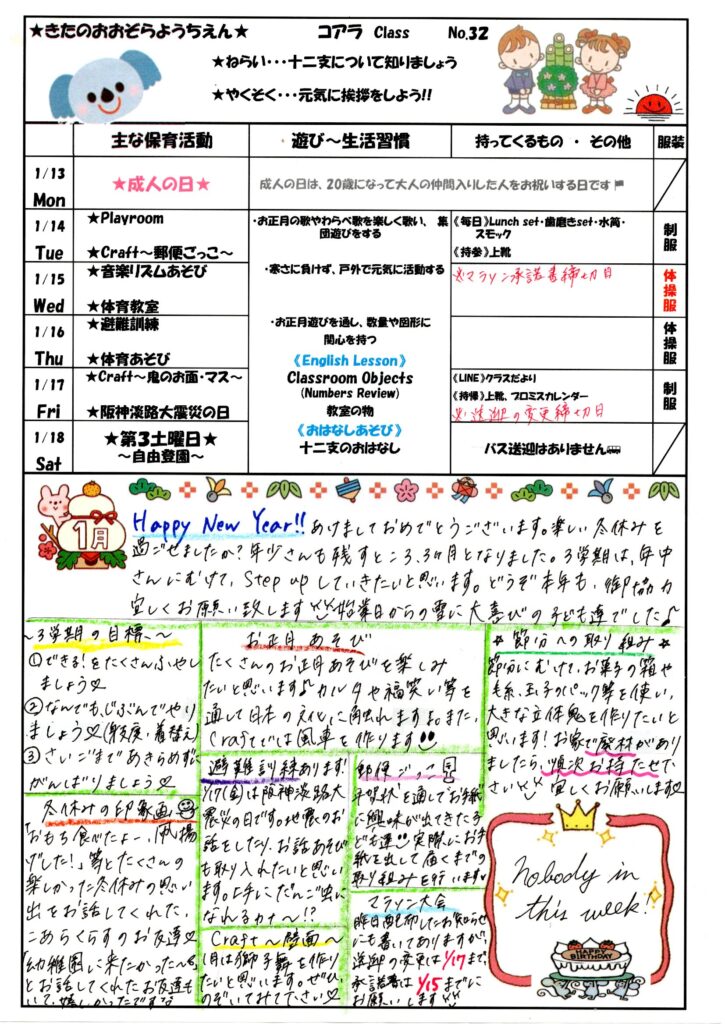 ★きたのおおぞらようちえん★ コアラ Class No.32
★ねらい・・・十二支について知りましょう
★やくそく・・・元気に挨拶をしよう!!
主な保育活動 遊び～生活習慣 持ってくるもの ・ その他 服装
1/13 Mon
★成人の日★
成人の日は、20歳になって大人の仲間入りした人をお祝いする日です
1/14 Tue
★Playroom
★Craft～郵便ごっこ～
・お正月の歌やわらべ歌を楽しく歌い、集団遊びをする
《毎日》Lunch set・歯磨きset・水筒・スモック
《持参》上靴
制服
1/15 Wed
★音楽リズムあそび
★体育教室
・寒さに負けず、戸外で元気に活動する
※マラソン承諾書締切日
体操服
1/16 Thu
★避難訓練
★体育あそび
・お正月遊びを通し、数量や図形に
関心を持つ
体操服
《English Lesson》
Classroom Objects
(Numbers Review)
教室の物
《おはなしあそび》
十二支のおはなし
1/17 Fri
★Craft～鬼のお面・マス～
★阪神淡路大震災の日
《LINE》クラスだより
《持帰》上靴、プロミスカレンダー
※送迎の変更締切日
制服
1/18 Sat
★第3土曜日★
～自由登園～
バス送迎はありません
1月
Happy New Year!! あけましておめでとうございます。楽しい冬休みを
過ごせましたか?年少さんも残すところ、3ヶ月となりました。3学期は、年中
さんにむけて、Step upしていきたいと思います。どうぞ本年も、御協力
宜しくお願い致します 始業日からの雪に大喜びの子ども達でした♪
～3学期の目標～
①できる!をたくさんふやし
ましょう♡
②なんでも、じぶんでやり
ましょう♡(身支度・着替え)
③さいごまであきらめずに
がんばりましょう♡
お正月あそび
たくさんのお正月あそびを楽しみ
たいと思います♪カルタや福笑い等を
通して日本の文化に触れます。また、
Craftでは風車を作ります
☆節分への取り組み☆
節分にむけて、お菓子の箱や
毛糸、玉子のパック等を使い、
大きな立体鬼を作りたいと
思います!お家で廃材があり
ましたら、順次お持たせ下
さい 宜しくお願いします♡
冬休みの印象画
「おもち食べたよー、凧揚
げした!」等とたくさんの
楽しかった冬休みの思い
出をお話してくれた、
こあらくらすのお友達♡
「幼稚園に来たかった～」
とお話してくれたお友達も
いて、嬉しかったですな
避難訓練あります!
1/17(金)は阪神淡路大
震災の日です。地震のお
話をしたり、お話あそび
も取り入れたいと思いま
す。上手にだんご虫に
なれるカナ～!?
Craft～壁面～
1月は獅子舞を作り
たいと思います。ぜひ、
のぞいてみて下さい♡
郵便ごっこ
年賀状を通してお手紙
に興味が出てきた子
ども達 実際にお手
紙を出して届くまでの
取り組みを行います。
マラソン大会
昨日配布したお知らせ
にも書いてありますが、
送迎の変更は1/17まで、
承諾書は1/15までに
お願いします
Nobody in
this week!
HAPPY
BIRTHDAY